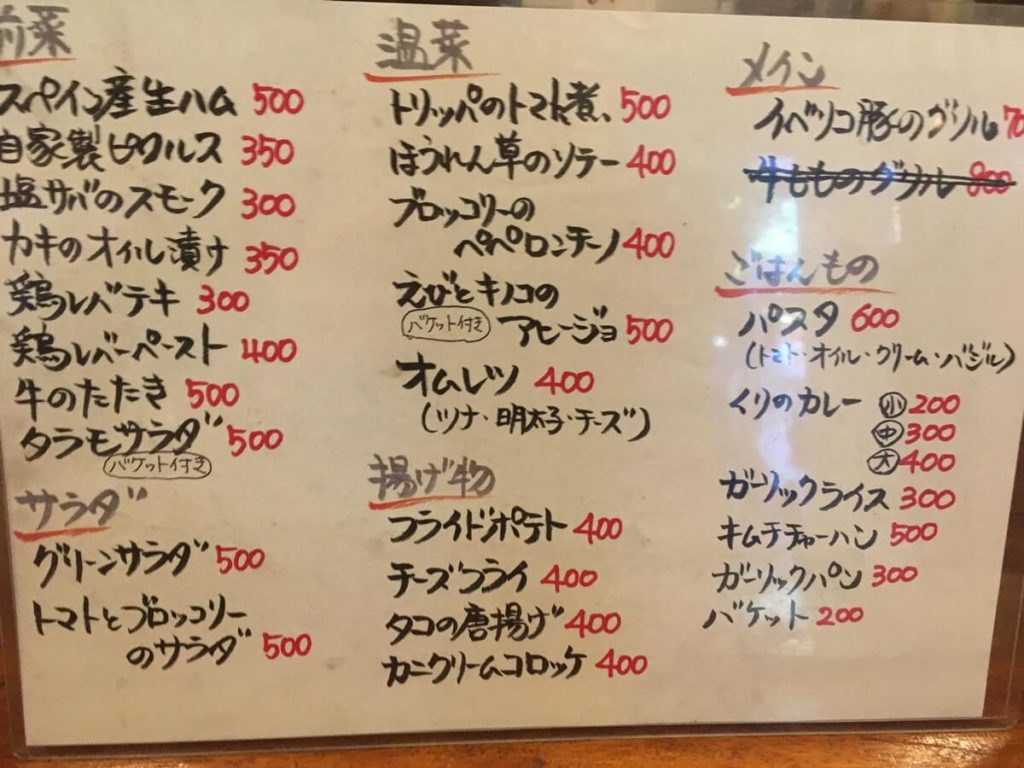 前菜
スペイン産生ハム 500
自家製ピクルス 350
塩サバのスモーク 300
カキのオイル漬け 350
鶏レバテキ 300
鶏レバーペースト 400
牛のたたき 500
タラモサラダ 500
バケット付き
サラダ
グリーンサラダ 500
トマトとブロッコリー
のサラダ 500
温菜
トリッパのトマト煮 500
ほうれん草のソテー 400
ブロッコリーの
ペペロンチーノ 400
えびとキノコの
バケット付き アヒージョ 500
オムレツ 400
(ツナ・明太子・チーズ)
揚げ物
フライドポテト 400
チーズフライ 400
タコの唐揚げ 400
カニクリームコロッケ 400
メイン
イベリコ豚のグリル 70
牛もものグリル 800
ごはんもの
パスタ 600
(トマト・オイル・クリーム・バジル)
イリのカレー 小 200
中 300
大 400
ガーリックライス 300
キムチチャーハン 500
ガーリックパン 300
バケット 200